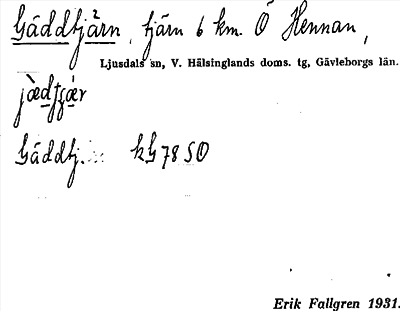 Gäddtjärn, tjärn 6 km. Ö Hennan,
Ljusdals sn, V. Hälsinglands doms. tg, Gävleborgs län.
Gäddtj. kG 78 SO
Erik Fallgren 1931.